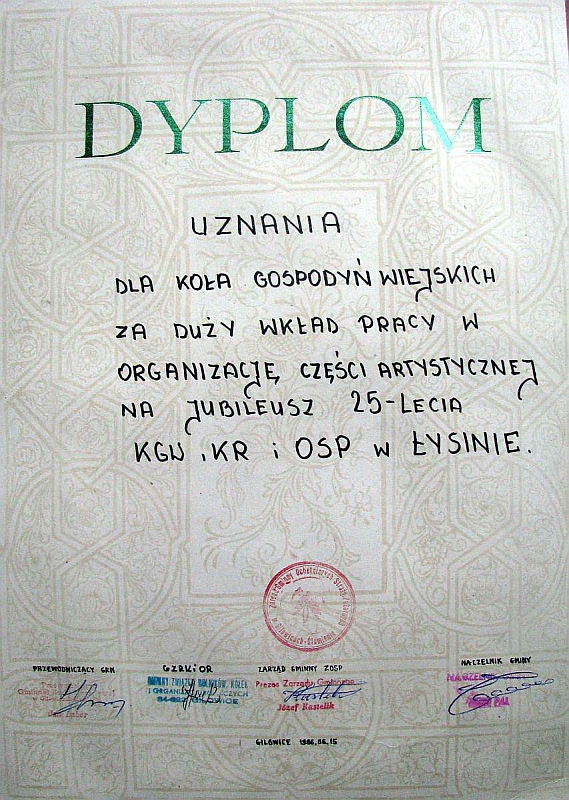 DYPLOM
UZNANIA
DLA KOŁA GOSPODYŃ WIEJSKICH
ZA DUŻY WKŁAD PRACY W
ORGANIZACJĘ CZĘŚCI ARTYSTYCZNEJ
NA JUBILEUSZ 25-LECIA
KGW, KR i OSP w ŁYSINIE.
PRZEWODNICZĄCY GRN
GZRKiOR
ZARZĄD GMINNY ZOSP
NACZELNIK GMINY
GMINNY ZWIĄZEK ROLNIKÓW, KÓŁEK
I ORGANIZACJI ROLNICZYCH
Prezes Zarządu Gminnego
Józef Kastelik
GILOWICE 1986.06.15